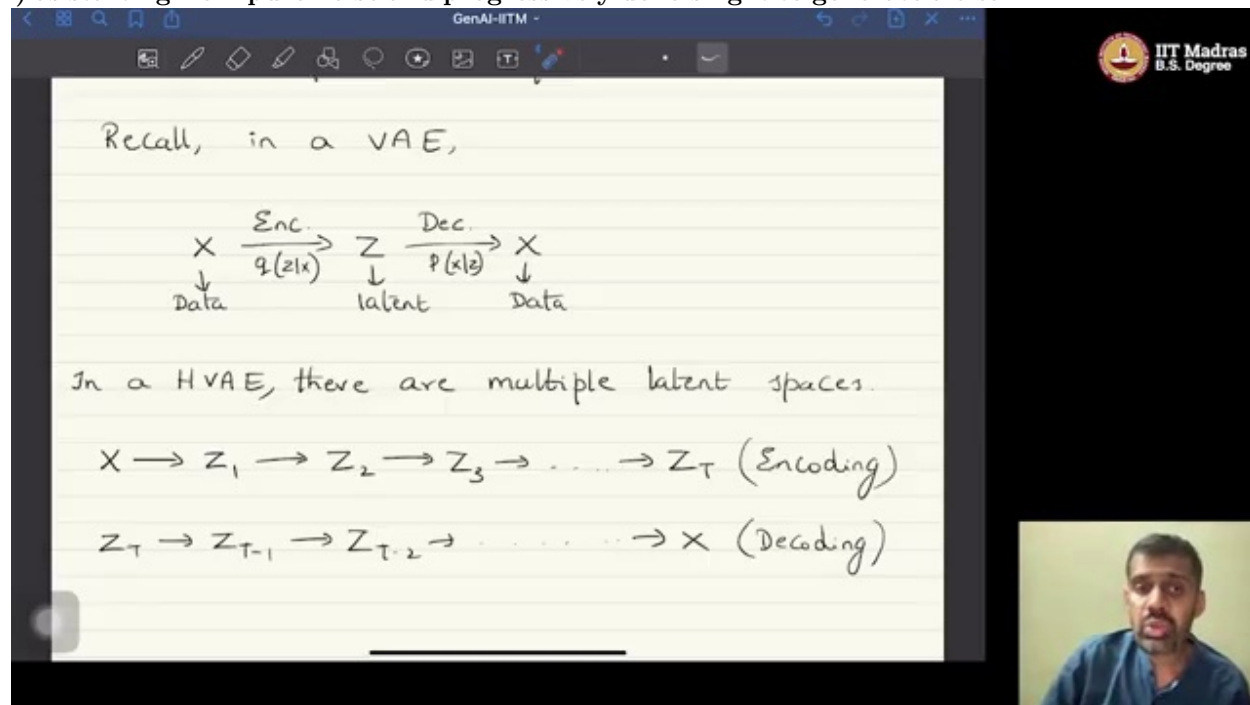 GenAI-IITM
IIT Madras
B.S. Degree
Recall, in a VAE,
X Enc. q(z|x) → Z Dec. p(x|z) → X
↓ Data ↓ latent ↓ Data
In a HVAE, there are multiple latent spaces.
X → Z₁ → Z₂ → Z₃ → ..... → Z_T (Encoding)
Z_T → Z_T-1 → Z_T-2 → ....... → X (Decoding)